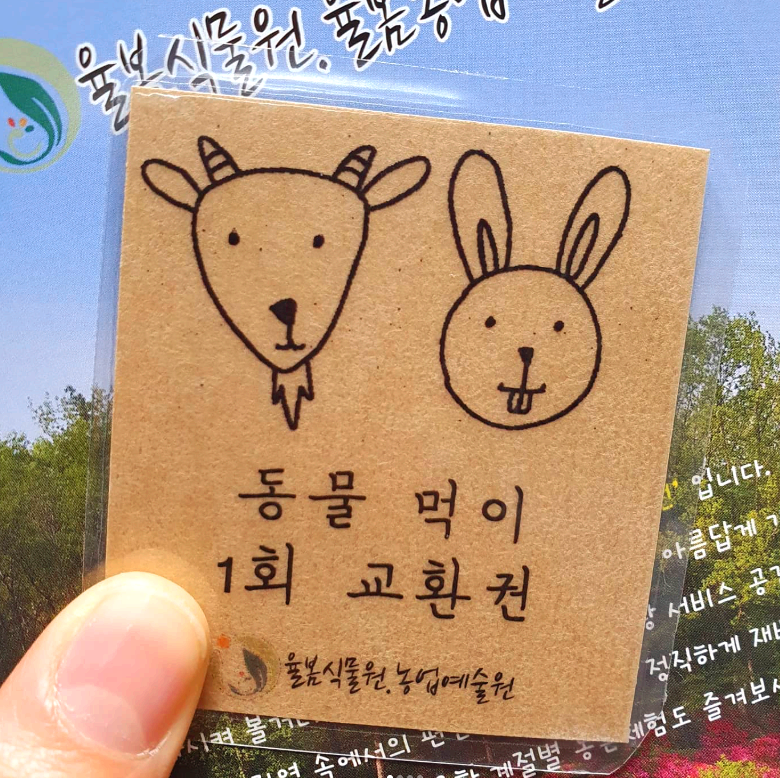 율봄식물원.율봄농업
동물 먹이
1회 교환권
율봄식물원.농업예술원
입니다.
아름답게
서비스 공
정직하게 재
시켜 볼
체험도 즐겨보시
속에서의
계절별